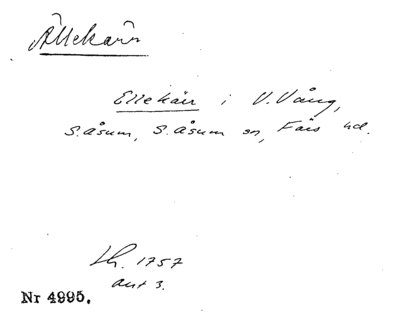 Ällekärr
Ellekärr i V. Vång,
S. Åsum, S. Åsum sn, Färs hd.
Lh. 1757
akt 3.
Nr 4995.